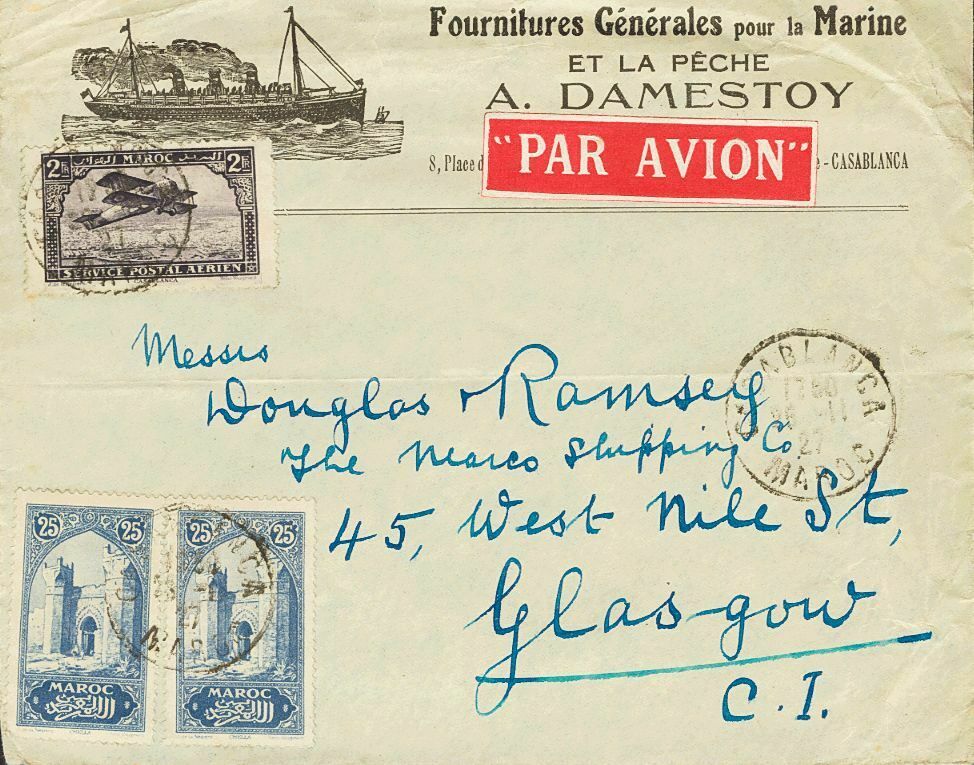 Fournitures Générales pour la Marine
ET LA PÊCHE
A. DAMESTOY
8, Place d - CASABLANCA
"PAR AVION"
2FR MAROC 2FR
SERVICE POSTAL AERIEN
CASABLANCA
Messrs
Douglas & Ramsey
The Nearco Shipping Co
45, West Nile St,
Glasgow
C. I.
CASABLANCA
11
27
MAROC
25 25
MAROC
CHELLA
25 25
MAROC
CHELLA